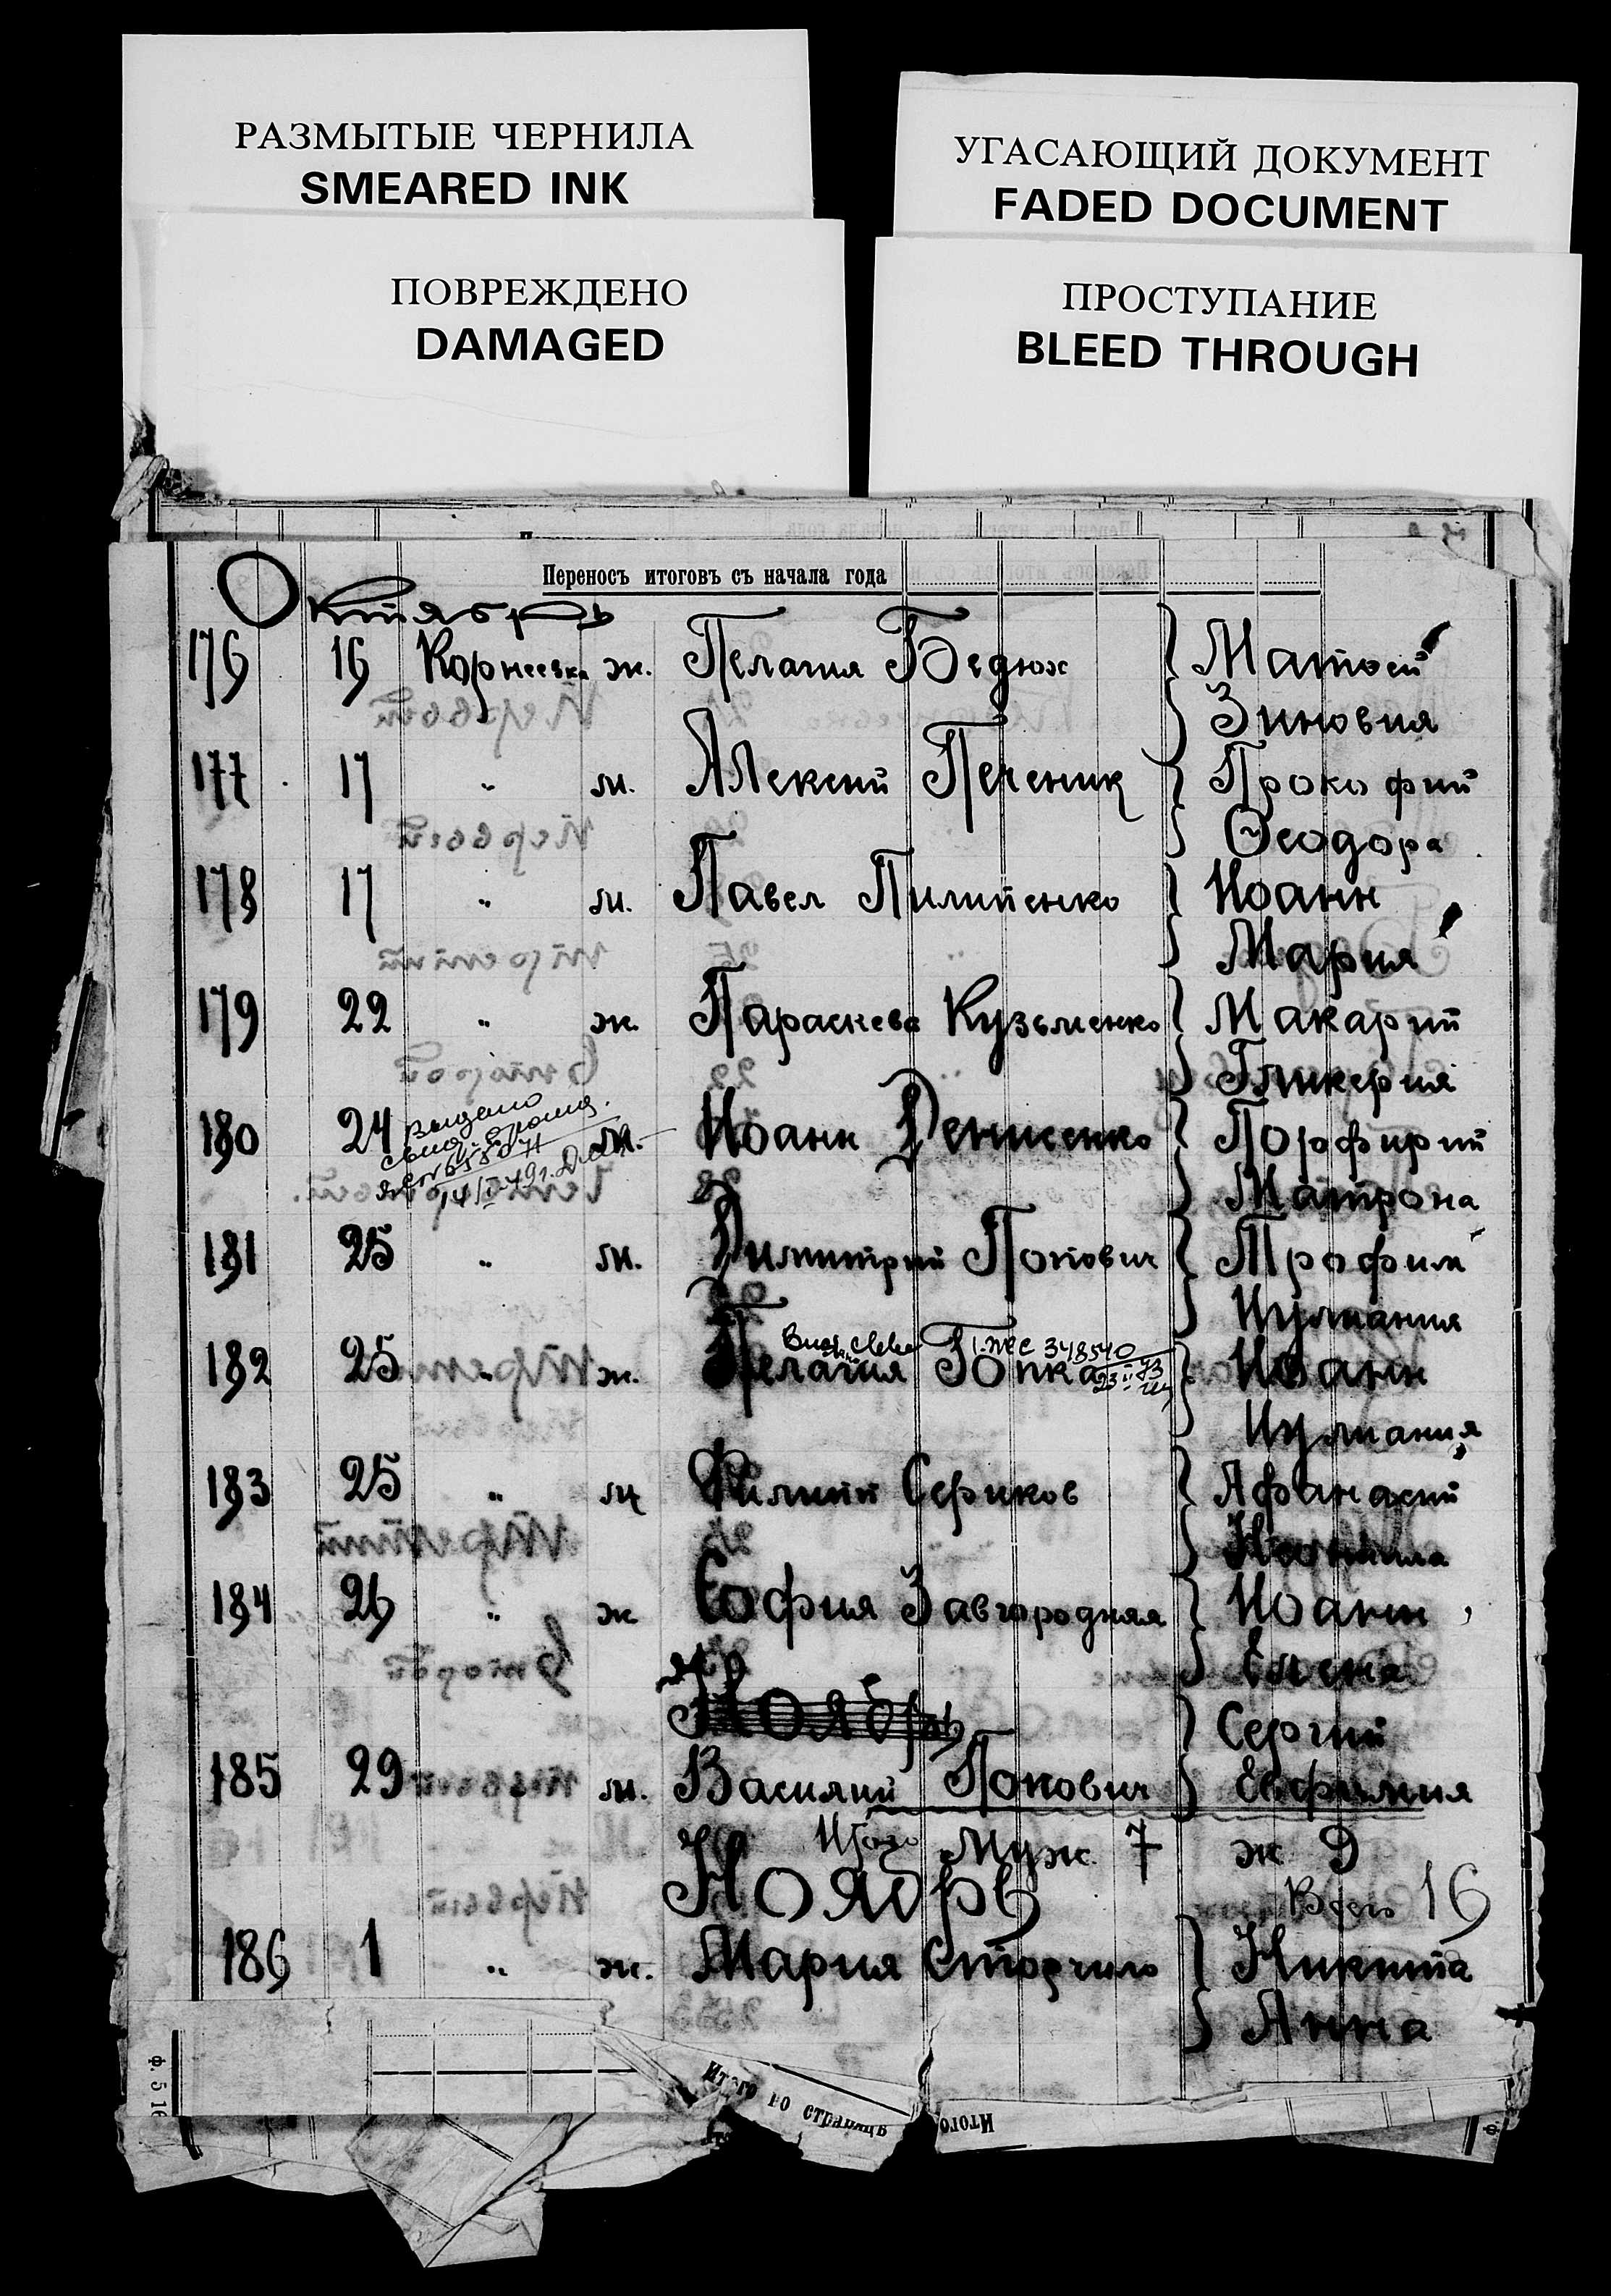 РАЗМЫТЫЕ ЧЕРНИЛА
SMEARED INK
УГАСАЮЩИЙ ДОКУМЕНТ
FADED DOCUMENT
ПОВРЕЖДЕНО
DAMAGED
ПРОСТУПАНИЕ
BLEED THROUGH
Переносъ итоговъ съ начала года
Октябрь
176 16 Корнеевка ж. Пелагия Бедюх Матвей
Зиновия
177 17 " м. Алексий Печеник Прокофий
Феодора
178 17 " м. Павел Пилипенко Иоанн
Мария
179 22 " ж. Параскева Кузьменко Макарий
Гликерия
180 24 м. Иоанн Денисенко Порфирий
Выдано
14/I-49г.
Матрона
181 25 " м. Димитрий Попович Трофим
Иулиания
348540
182 25 " ж. Пелагия Гопка Иоанн
Иулиания
183 25 " м Филипп Сериков Афанасий
184 26 " ж София Завгородняя Иоанн
Елена
Ноябрь
Сергий
185 29 м. Василий Попович Евфимия
Итого Муж. 7 ж 9
Ноябрь
Всего 16
186 1 " ж. Мария Сторчило Никита
Анна
Итого по страницѣ
Итого
ф. 516